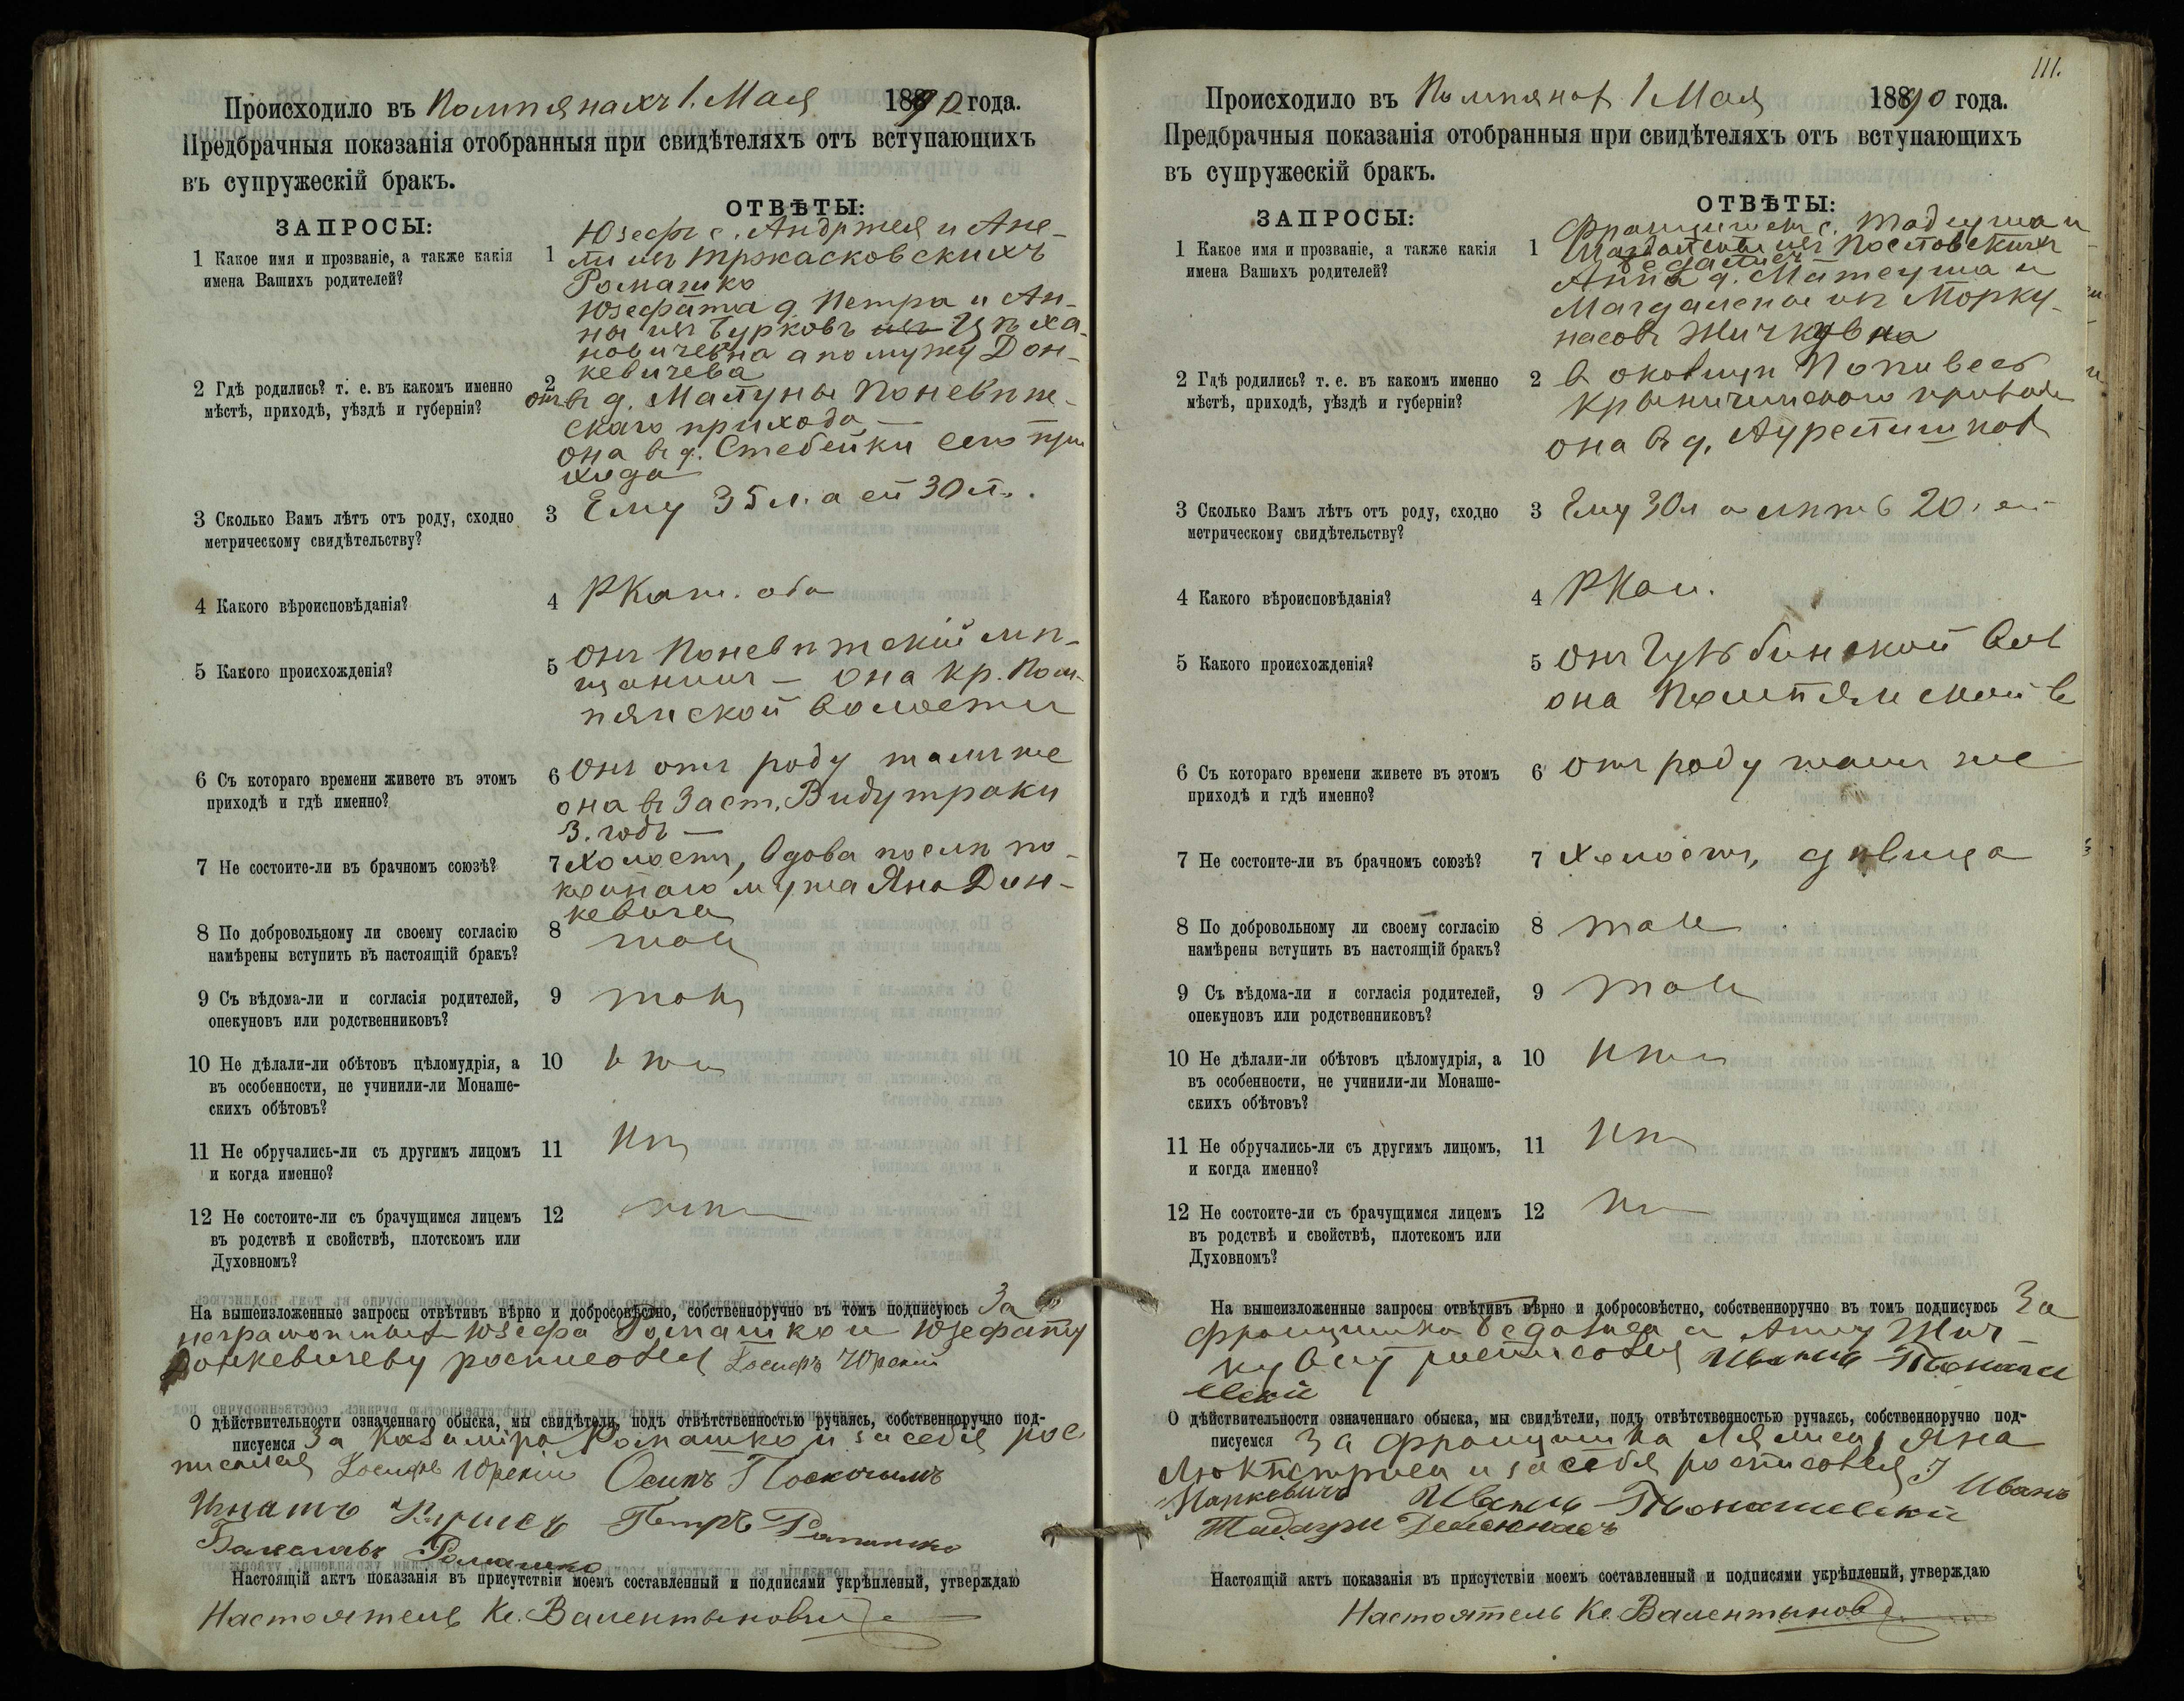 Происходило въ Помпянахъ 1. Мая 1890 года.
Предбрачныя показанія отобранныя при свидѣтеляхъ отъ вступающихъ
въ супружескій бракъ.
ЗАПРОСЫ:
ОТВѢТЫ:
1 Какое имя и прозваніе, а также какія
имена Вашихъ родителей?
1 Юзефъ с. Андржея и Ане-
ли изъ
Ромашко
Юзефата д. Петра и Ан-
ны изъ Бурковъ
а по мужу Дон-
кевичева
2 Гдѣ родились? т. е. въ какомъ именно
мѣстѣ, приходѣ, уѣздѣ и губерніи?
2 онъ въ д. Поневѣж-
скаго прихода
она въ д. Стебейки сего при
хода
3 Сколько Вамъ лѣтъ отъ роду, сходно
метрическому свидѣтельству?
3 Ему 35 л. а ей 30 л.
4 Какого вѣроисповѣданія?
4 РКат. оба
5 Какого происхожденія?
5 Онъ Поневѣжскій мѣ-
щанинъ — она кр. Пом-
пянской волости
6 Съ котораго времени живете въ этомъ
приходѣ и гдѣ именно?
6 Онъ отъ роду тамъ же
она въ заст. Видутраки
3. годъ —
7 Не состоите-ли въ брачномъ союзѣ?
7 Холостъ, вдова послѣ по-
койнаго мужа Яна Дон-
кевича
8 По добровольному ли своему согласію
намѣрены вступить въ настоящій бракъ?
8 такъ
9 Съ вѣдома-ли и согласія родителей,
опекуновъ или родственниковъ?
9 такъ
10 Не дѣлали-ли обѣтовъ цѣломудрія, а
въ особенности, не учинили-ли Монаше-
скихъ обѣтовъ?
10 нѣтъ
11 Не обручались-ли съ другимъ лицомъ
и когда именно?
11 нѣтъ
12 Не состоите-ли съ брачущимся лицемъ
въ родствѣ и свойствѣ, плотскомъ или
Духовномъ?
12 нѣтъ
На вышеизложенные запросы отвѣтивъ вѣрно и добросовѣстно, собственноручно въ томъ подписуюсь За
неграмотныхъ Юзефа Ромашко и Юзефату
Донкевичеву росписался Іосифъ Юрскій
О дѣйствительности означеннаго обыска, мы свидѣтели, подъ отвѣтственностью ручаясь, собственноручно под-
писуемся За Казиміра Ромашко и за себя рос
писался Іосифъ Юрскій Осипъ
Игнатъ Петръ Ромашко
Ромашко
Настоящій актъ показанія въ присутствіи моемъ составленный и подписями укрѣпленый, утверждаю
Настоятель Кс. Валентыновичъ
111.
Происходило въ Помпянах 1 Мая 1890 года.
Предбрачныя показанія отобранныя при свидѣтеляхъ отъ вступающихъ
въ супружескій бракъ.
ЗАПРОСЫ:
ОТВѢТЫ:
1 Какое имя и прозваніе, а также какія
имена Вашихъ родителей?
1 Францишекъ с. Тадеуша и
Магдалены изъ
Анна д. Матеуша и
Магдалены изъ Морку-
насовъ Жичкувна
2 Гдѣ родились? т. е. въ какомъ именно
мѣстѣ, приходѣ, уѣздѣ и губерніи?
2 въ околицѣ
прихода
она въ д.
3 Сколько Вамъ лѣтъ отъ роду, сходно
метрическому свидѣтельству?
3 Ему 30 л а 20. ей
4 Какого вѣроисповѣданія?
4 РКат.
5 Какого происхожденія?
5 Онъ вол
она Помпянской в
6 Съ котораго времени живете въ этомъ
приходѣ и гдѣ именно?
6 Отъ роду тамъ же
7 Не состоите-ли въ брачномъ союзѣ?
7 Холостъ, дѣвица
8 По добровольному ли своему согласію
намѣрены вступить въ настоящій бракъ?
8 такъ
9 Съ вѣдома-ли и согласія родителей,
опекуновъ или родственниковъ?
9 такъ
10 Не дѣлали-ли обѣтовъ цѣломудрія, а
въ особенности, не учинили-ли Монаше-
скихъ обѣтовъ?
10 нѣтъ
11 Не обручались-ли съ другимъ лицомъ,
и когда именно?
11 нѣтъ
12 Не состоите-ли съ брачущимся лицемъ
въ родствѣ и свойствѣ, плотскомъ или
Духовномъ?
12 нѣтъ
На вышеизложенные запросы отвѣтивъ вѣрно и добросовѣстно, собственноручно въ томъ подписуюсь За
Францишка и Анну Жич-
кувну росписался
О дѣйствительности означеннаго обыска, мы свидѣтели, подъ отвѣтственностью ручаясь, собственноручно под-
писуемся За Францишка Яна
и за себя росписался Иванъ
Настоящій актъ показанія въ присутствіи моемъ составленный и подписями укрѣпленый, утверждаю
Настоятель Кс. Валентынович